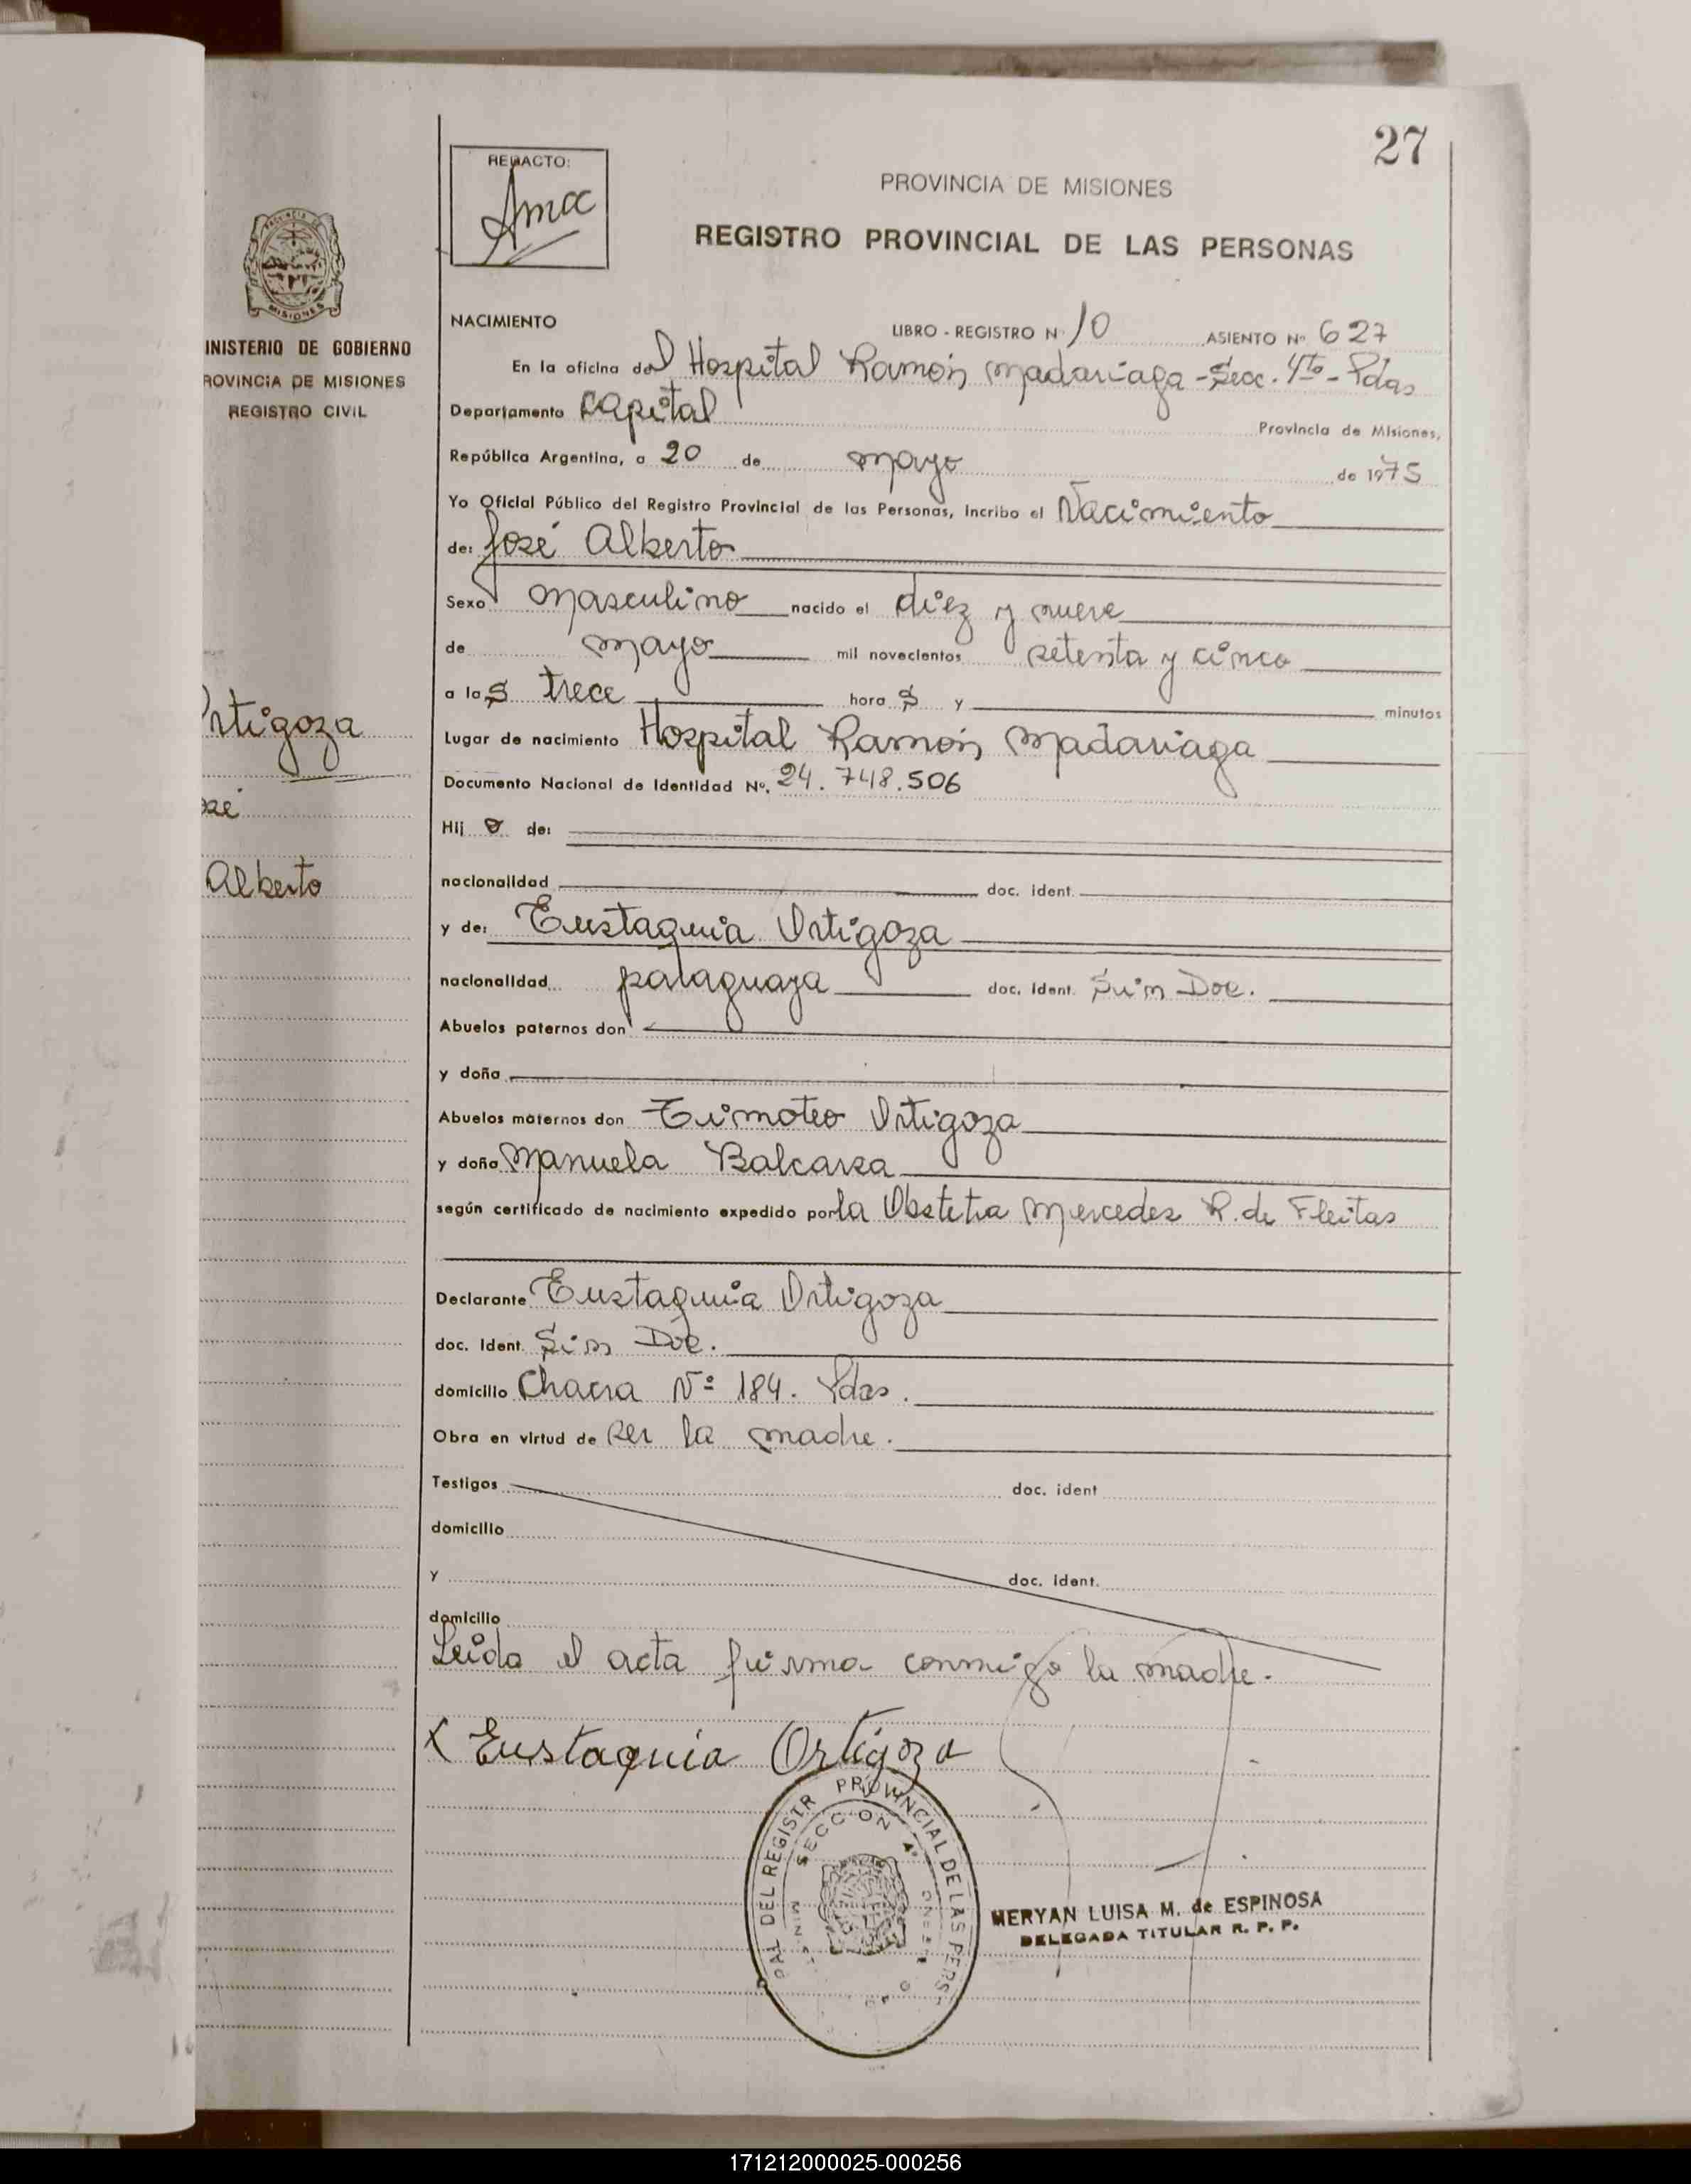 27
REDACTO:
PROVINCIA DE MISIONES
REGISTRO PROVINCIAL DE LAS PERSONAS
INISTERIO DE GOBIERNO
ROVINCIA DE MISIONES
REGISTRO CIVIL
NACIMIENTO LIBRO - REGISTRO Nº 10 ASIENTO Nº 627
En la oficina del Hospital Ramón Madariaga - Secc. 4ta - Pdas
Departamento Capital Provincia de Misiones,
República Argentina, a 20 de mayo de 1975
Yo Oficial Público del Registro Provincial de las Personas, incribo el Nacimiento
de: José Alberto
Sexo masculino nacido el diez y nueve
de mayo mil novecientos setenta y cinco
a las trece hora s y minutos
Ortigoza
Lugar de nacimiento Hospital Ramón Madariaga
Documento Nacional de Identidad Nº. 24.748.506
osé
Hij o de:
Alberto
nacionalidad doc. ident.
y de: Eustaquia Ortigoza
nacionalidad paraguaya doc. ident. Sin Doc.
Abuelos paternos don
y doña
Abuelos maternos don Timoteo Ortigoza
y doña Manuela Balcarza
según certificado de nacimiento expedido por la Obstetra Mercedes R. de Fleitas
Declarante Eustaquia Ortigoza
doc. ident. Sin Doc.
domicilio Chacra Nº 184. Pdas.
Obra en virtud de ser la madre.
Testigos doc. ident
domicilio
y doc. ident.
domicilio
Leida el acta firma conmigo la madre.
X Eustaquia Ortigoza
PAL DEL REGISTR PROVINCIAL DE LAS PERS
SECCION 4ª
MERYAN LUISA M. de ESPINOSA
DELEGADA TITULAR R. P. P.
171212000025-000256